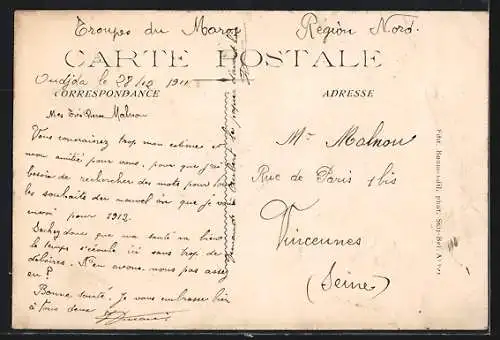 Troupes du Maroc Région Nord.
CARTE POSTALE
Oudjda le 28/10 1911
CORRESPONDANCE
ADRESSE
Mes Très Chers Malnou
Vous connaissez trop mon estime et
mon amitié pour vous, pour que j'ai
besoin de rechercher des mots pour
les souhaits du nouvel an que je vous
pour 1912.
Sachez donc que ma santé va bien
le temps s'écoule ici sans trop de
déboires. N'en avons-nous pas assez
eu ?
Bonne santé. Je vous embrasse bien
à tous deux
Mr Malnou
Rue de Paris 1 bis
Vincennes
(Seine)